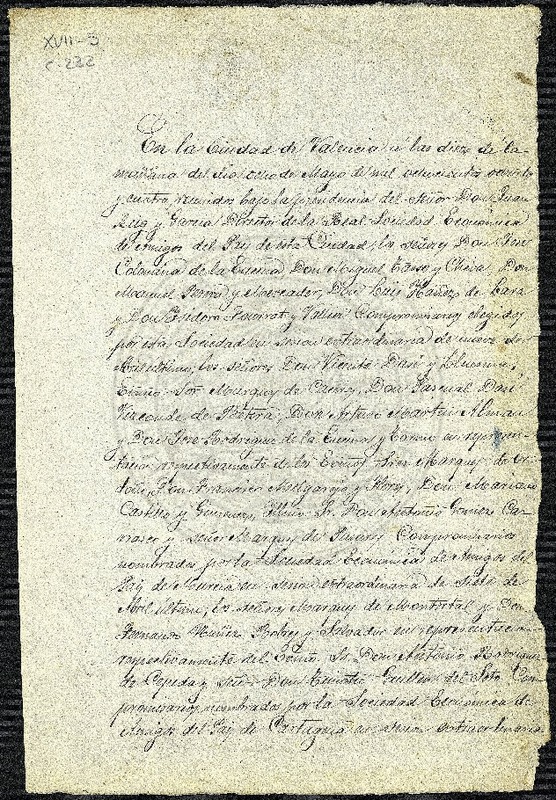 XVII-3
C-232
En la Ciudad de Valencia a las diez de la
mañana del dia ocho de Mayo de mil ochocientos ochenta
y cuatro, reunidos bajo la presidencia del Señor Don Juan
y Garcia Director de la Real Sociedad Económica
de Amigos del Pais de esta Ciudad, los señores Don José
Colomina de la Don Miguel y Chiva, Don
Manuel y Mercader, Don Luis Ibañez de Lara
y Don Isidoro y Compromisarios elegidos
por esta Sociedad en sesion extraordinaria de nueve de
Abril ultimo, los señores Don Vicente Dasí y Lluesma,
Excmo. Sor. Marques de Don Pascual Dasí
Vizconde de Bétera, Don Arturo Martin
y Don José Rodriguez de la y en represen-
tacion respectivamente de los Excmos. Sres. Marques de
Don Francisco Melgarejo y Flores, Don Mariano
Castillo y Ilmo. Sr. Don Antonio Gomez
y Señor Marques del Compromisarios
nombrados por la Sociedad Económica de Amigos del
Pais de Murcia en sesion extraordinaria de siete de
Abril ultimo, los señores Marques de Montortal y Don
Fernando Nuñez Robres y Salvador en representacion
respectivamente del Excmo. Sr. Don Antonio Rodriguez
de Cepeda y Señor Don Guillen del Soto Com-
promisarios nombrados por la Sociedad Económica de
Amigos del Pais de Cartagena en sesion extraordinaria